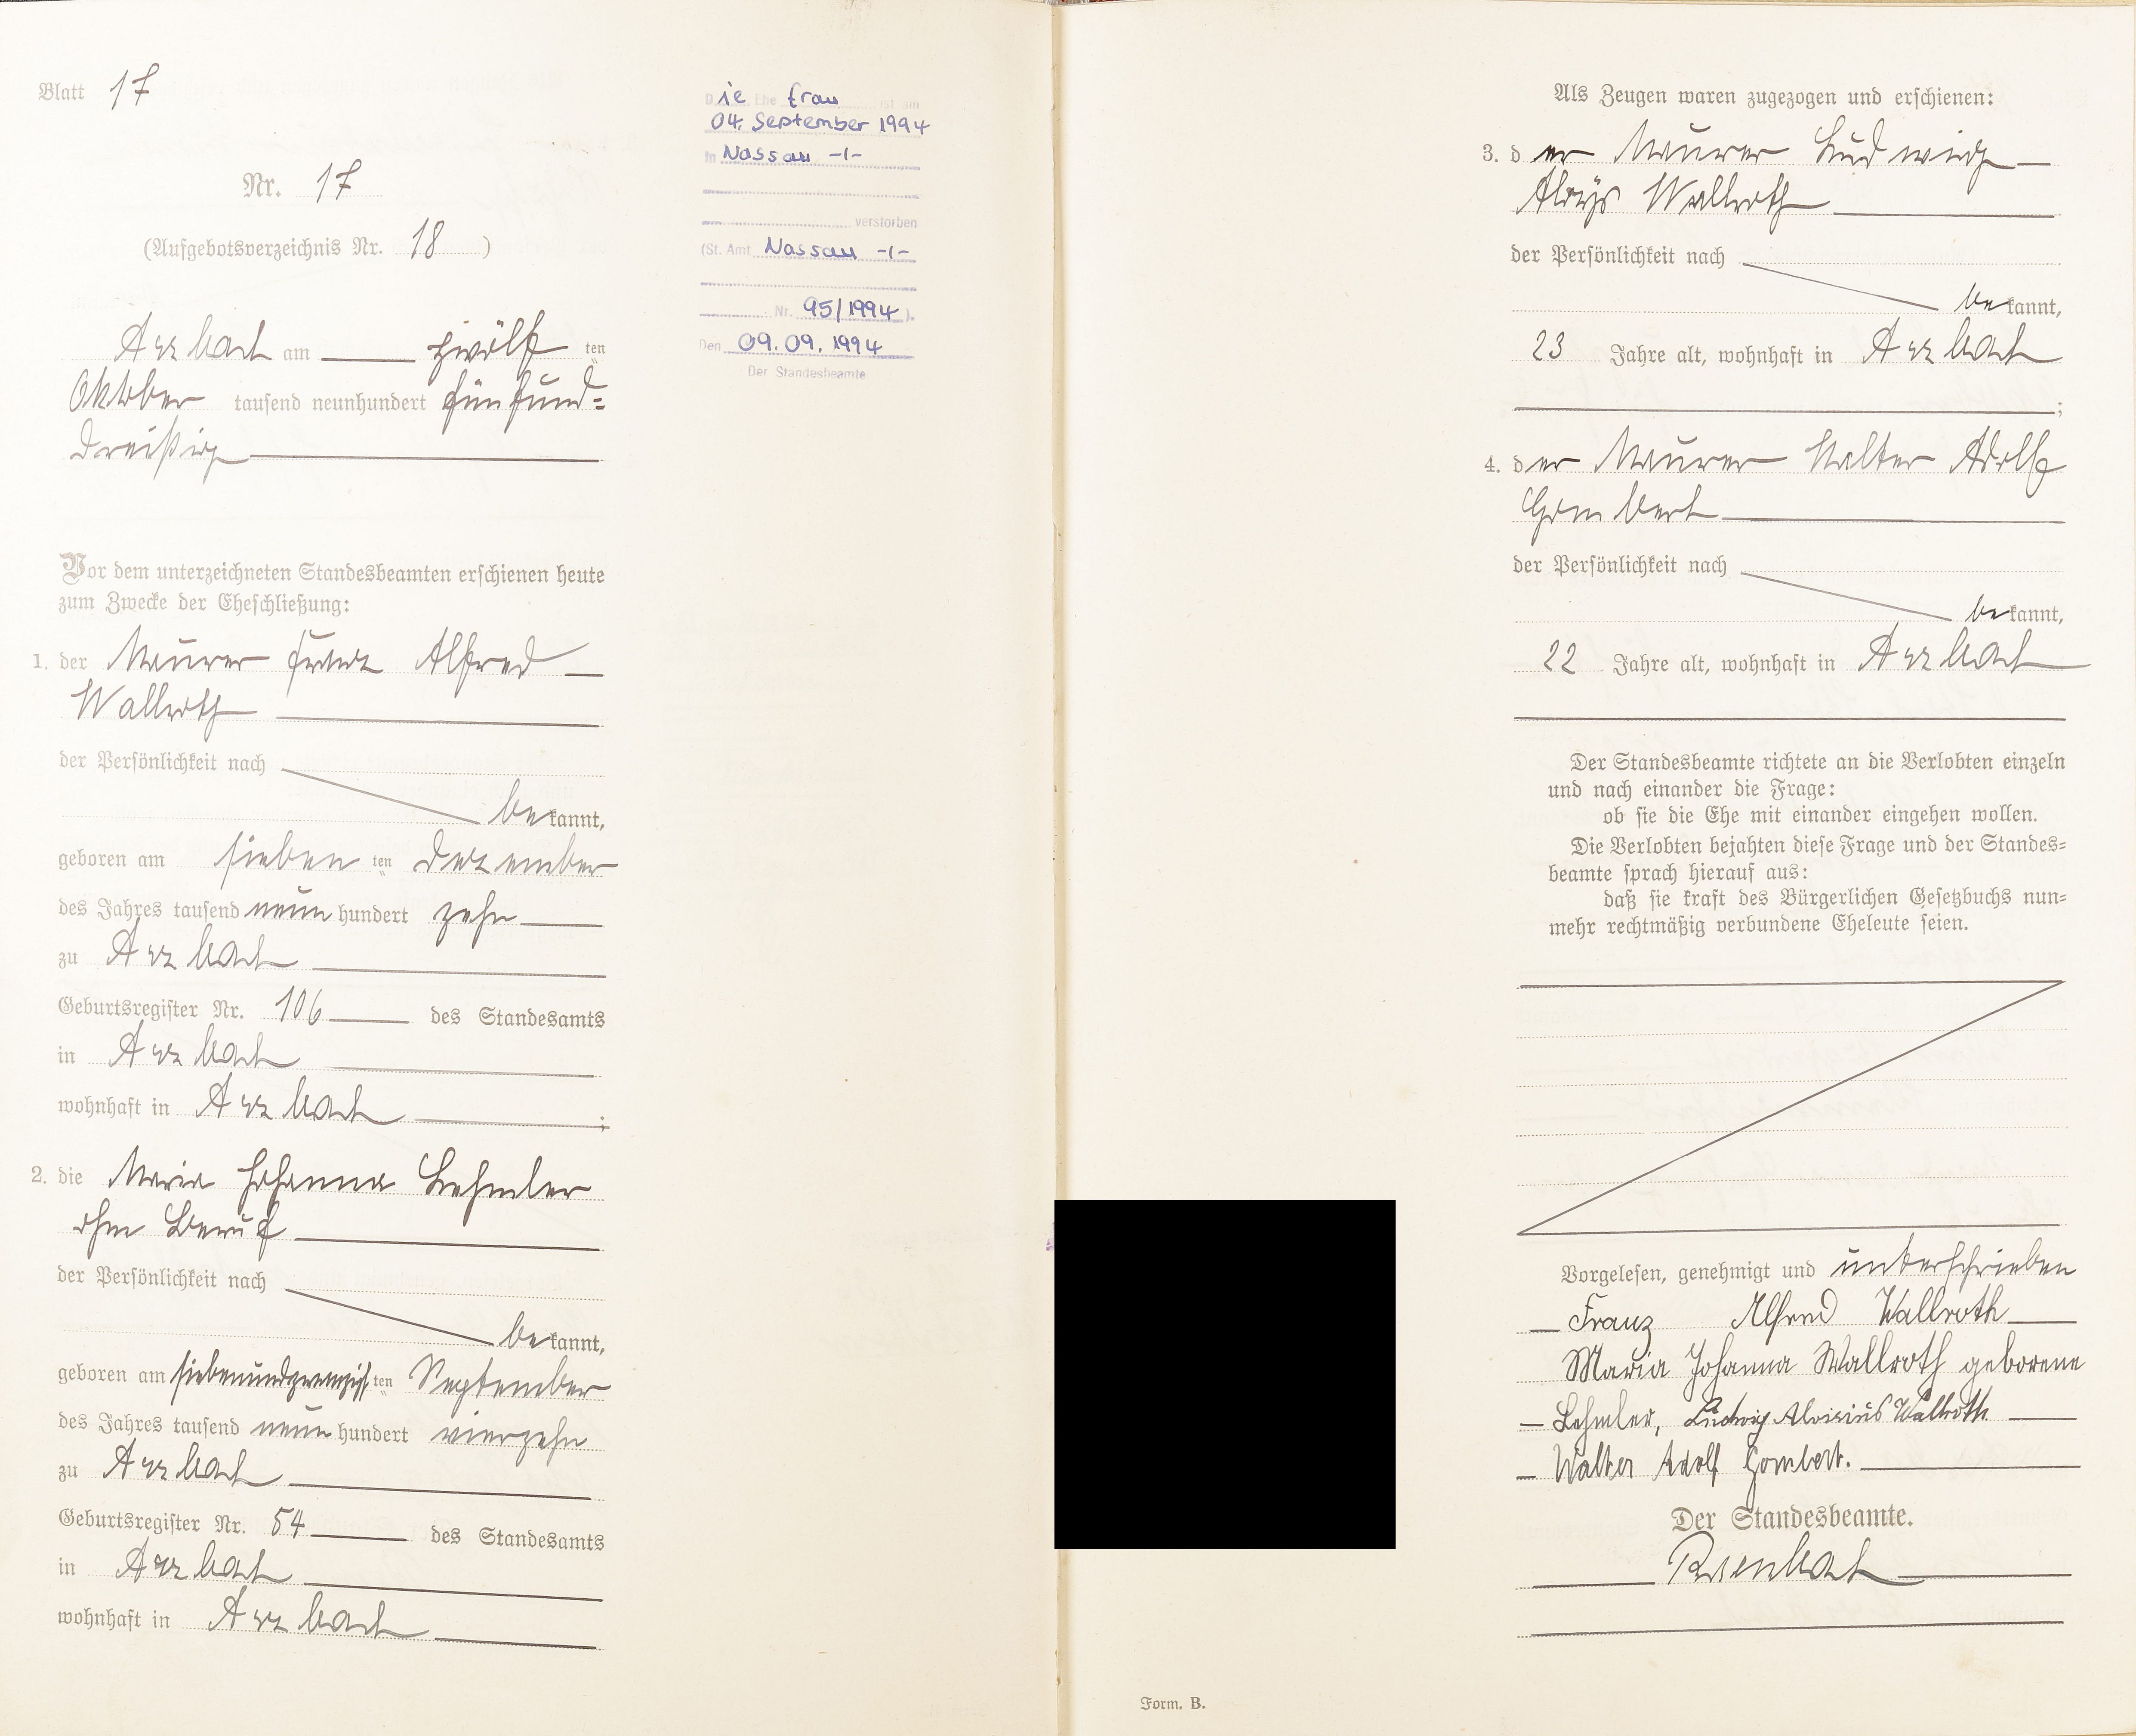 Blatt 17
Nr. 17
(Aufgebotsverzeichnis Nr. 18)
Arzbach am zwölf ten
Oktober tausend neunhundert fünfund-
dreißig
Vor dem unterzeichneten Standesbeamten erschienen heute
zum Zwecke der Eheschließung:
1. der Maurer Franz Alfred
Wallroth
der Persönlichkeit nach
bekannt,
geboren am sieben ten Dezember
des Jahres tausend neun hundert zehn
zu Arzbach
Geburtsregister Nr. 106 des Standesamts
in Arzbach
wohnhaft in Arzbach ;
2. die Maria Johanna Lehmler
ohne Beruf
der Persönlichkeit nach
bekannt,
geboren am siebenundzwanzigsten September
des Jahres tausend neun hundert vierzehn
zu Arzbach
Geburtsregister Nr. 54 des Standesamts
in Arzbach
wohnhaft in Arzbach
Die Ehefrau ist am
04. September 1994
in Nassau -/-
verstorben
(St. Amt Nassau -/-
Nr. 95/1994 ).
Den 09.09.1994
Der Standesbeamte
Als Zeugen waren zugezogen und erschienen:
3. der Maurer Ludwig
Aloys Wallroth
der Persönlichkeit nach
bekannt,
23 Jahre alt, wohnhaft in Arzbach
;
4. der Maurer Walter Adolf
Gombert
der Persönlichkeit nach
bekannt,
22 Jahre alt, wohnhaft in Arzbach
Der Standesbeamte richtete an die Verlobten einzeln
und nach einander die Frage:
ob sie die Ehe mit einander eingehen wollen.
Die Verlobten bejahten diese Frage und der Standes-
beamte sprach hierauf aus:
daß sie kraft des Bürgerlichen Gesetzbuchs nun-
mehr rechtmäßig verbundene Eheleute seien.
Vorgelesen, genehmigt und unterschrieben
Franz Alfred Wallroth
Maria Johanna Wallroth geborene
Lehmler, Ludwig Aloisius Wallroth
Walter Adolf Gombert.
Der Standesbeamte.
Form. B.